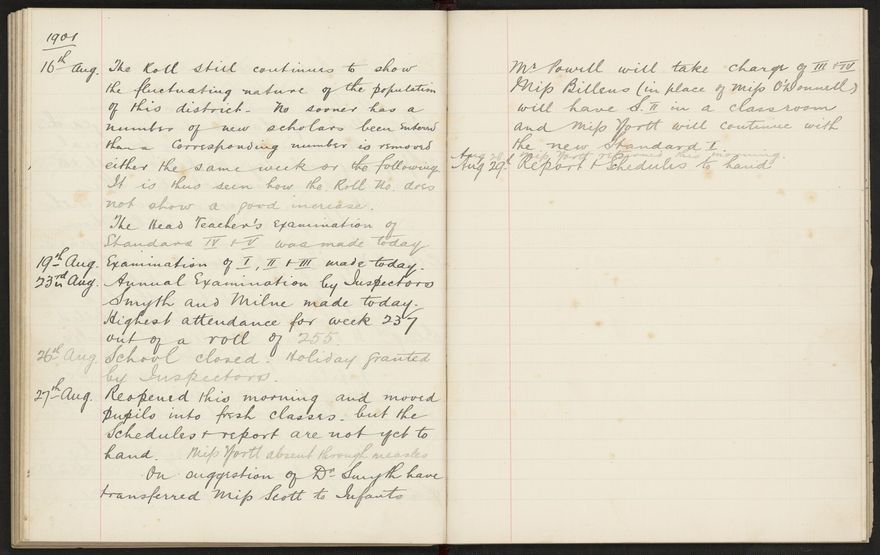 1901
16th Aug. The Roll still continues to show
the fluctuating nature of the population
of this district. No sooner has a
number of new scholars been entered
than a corresponding number is removed
either the same week or the following.
It is thus seen how the Roll No. does
not show a good increase.
The Head Teacher's Examination of
Standard IV & V was made today
19th Aug. Examination of I, II & III made today.
23rd Aug. Annual Examination by Inspectors
Smyth and Milne made today.
Highest attendance for week 237
out of a roll of 255.
26th Aug School closed. Holiday granted
by Inspectors.
27th Aug. Reopened this morning and moved
pupils into fresh classes. but the
Schedules & report are not yet to
hand. Miss North absent through measles
On suggestion of Dr Smyth have
transferred Miss Scott to Infants
Mr Powell will take charge of III & IV
Miss Billens (in place of Miss O'Donnell)
will have S. II in a classroom
and Miss North will continue with
the new Standard I.
Aug 28 Miss North returned this morning.
Aug 29th Report & Schedules to hand